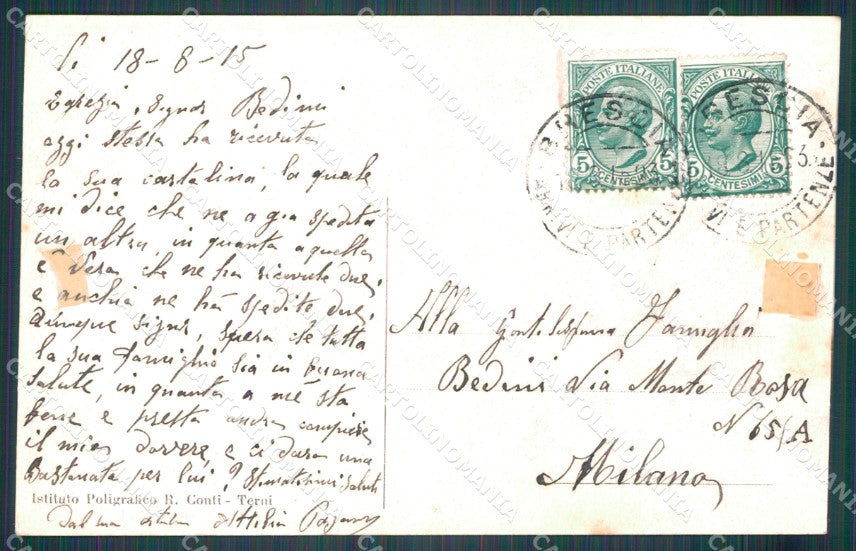 Li 18-8-15
Egregia, Signor Bedini
oggi stessa ha ricevuta
la sua cartolina, la quale
mi dice che ne a gia spedita
un altra, in quanta a quella
e vera che ne ha ricevute due,
e anchia ne ha spedite due,
dunque signor, spera che tutta
la sua famiglia sia in buona
salute, in quanta a me sta
bene e presta andra compiere
il mio dovere, e ci dara una
bastonata per lui? saluti
Istituto Poligrafico R. Conti - Terni
Dal suo
POSTE ITALIANE
5 CENTESIMI 5
POSTE ITALIANE
5 CENTESIMI 5
BRESCIA
ARRIVI E PARTENZE
BRESCIA
ARRIVI E PARTENZE
Alla Famiglia
Bedini Via Monte Rosa
N 65/A
Milano
CARTOLINOMANIA